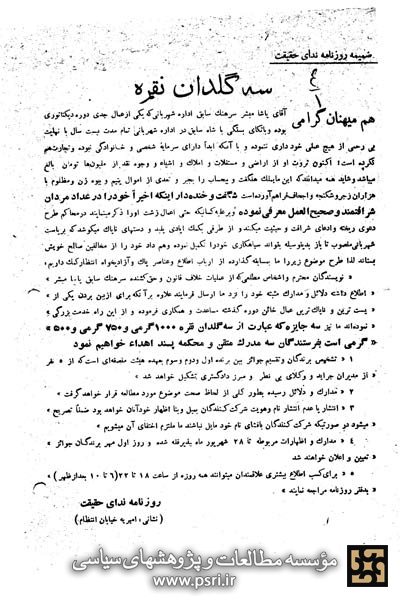 ضمیمه روزنامه ندای حقیقت
سه گلدان نقره
هم میهنان گرامی
آقای پاشا مبشر سرهنك سابق اداره شهربانی که یکی از عمال جدی دوره دیکتاتوری
بوده و باتکای بستگی با شاه سابق در اداره شهربانی تمام مدت بیست سال با نهایت
بی رحمی از هیچ عملی خود داری ننموده و با آنکه ابدأ دارای سرمایه شخصی و خانوادگی نبوده و تجارت هم
نکرده است؛ اکنون ثروت او از اراضی و مستغلات و املاك و اشیاء و وجوه نقد از ملیون‌ها تومان بالغ
میباشد و شاید همه میدانند که این ماهملك هنگفت و بیحساب را بجبر و تعدی از اموال یتیم و بیوه زن و مظلوم با
هزاران زجر و شکنجه و اجحاف فراهم آورده است شگفت و خنده دار اینکه اخیراً خود را در عداد مردان
شرافتمند و صحیح العمل معرفی نموده و بر علیه کسانیکه حتی اعمال زشت او را ذکر مینمایند در محاکم طرح
دعوی ریخته و ادعای شرافت و حیثیت میکند و از طرفی بکمك ایادی پلید و دستهای ناپاك میکوشد که بریاست
شهربانی منصوب تا باز بدینوسیله بتواند سیاهکاری خود را تکمیل نموده و هم داد خود را از مخالفین صالح خویش
بستاند لذا طرح موضوع زیر را ما بمسابقه گذارده از ارباب اطلاع و عناصر پاك و آزادیخواه انتظار کمك داریم:
« نویسندگان محترم و اشخاص مطلعی که از عملیات خلاف قانون و حق کشنده سرهنك سابق پاشا مبشر »
« اطلاع داشته دلائل و مدارك مثبته خود را نزد ما ارسال فرمایند علاوه بر آنکه برای از بین بردن یکی از »
« پست ترین و ناپاك ترین عمال خائن دوره گذشته مساعدت و همکاری فرموده و از این راه خدمت بزرگی »
« نموده‌اند ما نیز سه جایزه که عبارت از سه گلدان نقره ۱۰۰۰ گرمی و ۷۵۰ گرمی و ۵۰۰ »
« گرمی است بفرستندگان سه مدرك متقن و محکمه پسند اهداء خواهیم نمود
« ۱ – تشخیص برندگان و تقسیم جوائز بین برنده اول و دوم و سوم بعهده هیئت منصفه‌ای است که از »
« از مدیران جراید و وکلای بی نظر و مبرز دادگستری تشکیل خواهد شد »
« ۲ – مدارك و دلائل رسیده بطور کلی از لحاظ صحت موضوع مورد مطالعه قرار خواهد گرفت »
« ۳ – انتشار یا عدم انتشار نام و هویت شرکت کنندگان بمیل و بنا اظهار خود آنان خواهد بود ضمناً تصریح »
« میشود در صورتیکه شرکت کنندگان بافشای نام خود مایل نباشند ما ملتزم اخفای آن میشویم »
« ٤ – مدارك و اظهارات مربوطه تا ۲۸ شهریور ماه پذیرفته شده و روز اول مهر برندگان جوائز »
« تعیین و اعلان خواهند شد
« ٥ – برای کسب اطلاع بیشتری علاقمندان میتوانند همه روزه از ساعت ۱۸ تا ۲۲ (٦ تا ۱۰ بعد از ظهر) »
« بدفتر روزنامه مراجعه نمایند »
روزنامه ندای حقیقت
(نشانی: امیریه خیابان انتظام)
مؤسسه مطالعات و پژوهشهای سیاسی
www.psri.ir